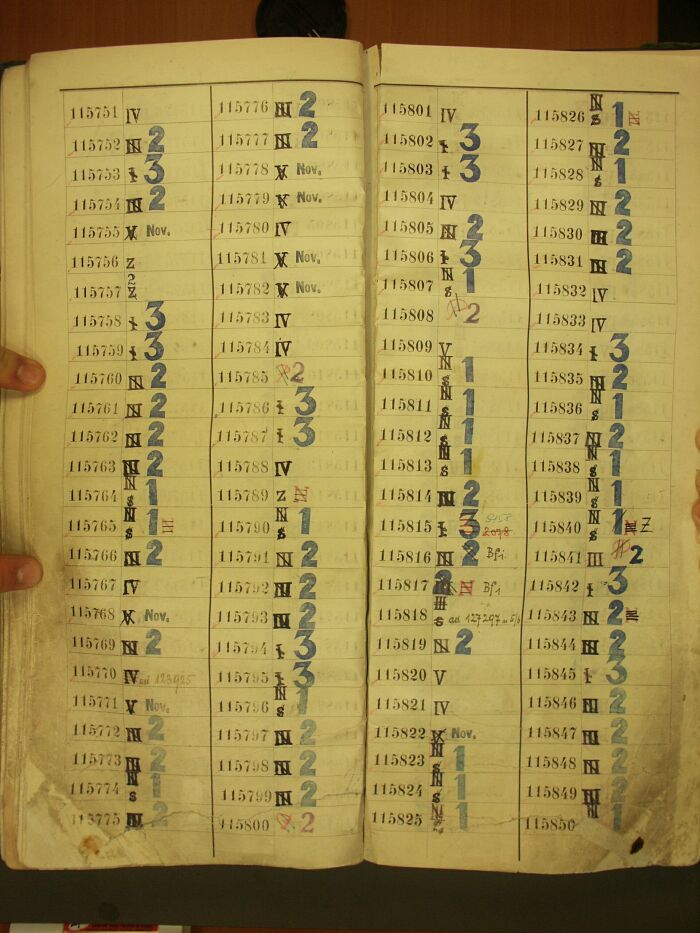 115751 IV
115752 III 2
115753 I 3
115754 III 2
115755 V Nov.
115756 Z
115757 Z Z
115758 I 3
115759 I 3
115760 III 2
115761 III 2
115762 III 2
115763 III 2
115764 N S 1
115765 N S 1
115766 III 2
115767 IV
115768 V Nov.
115769 III 2
115770 IV au 123925
115771 V Nov.
115772 III 2
115773 III 2
115774 N S 1
115775 III 2
115776 III 2
115777 III 2
115778 V Nov.
115779 V Nov.
115780 IV
115781 V Nov.
115782 V Nov.
115783 IV
115784 IV
115785 2
115786 I 3
115787 I 3
115788 IV
115789 Z
115790 N S 1
115791 III 2
115792 III 2
115793 III 2
115794 I 3
115795 I 3
115796 N S 1
115797 III 2
115798 III 2
115799 III 2
115800 2
115801 IV
115802 I 3
115803 I 3
115804 IV
115805 III 2
115806 I 3
115807 N S 1
115808 2
115809 V
115810 N S 1
115811 N S 1
115812 N S 1
115813 N S 1
115814 III 2
115815 I 3 2078
115816 III 2
115817 2
115818 III S au 127297
115819 III 2
115820 V
115821 IV
115822 V Nov.
115823 N S 1
115824 N S 1
115825 N 1
115826 N S 1
115827 III 2
115828 N S 1
115829 III 2
115830 III 2
115831 III 2
115832 IV
115833 IV
115834 I 3
115835 III 2
115836 N S 1
115837 III 2
115838 N S 1
115839 N S 1
115840 N S 1 Z
115841 III 2
115842 I 3
115843 III 2
115844 III 2
115845 I 3
115846 III 2
115847 III 2
115848 III 2
115849 III 2
115850 1